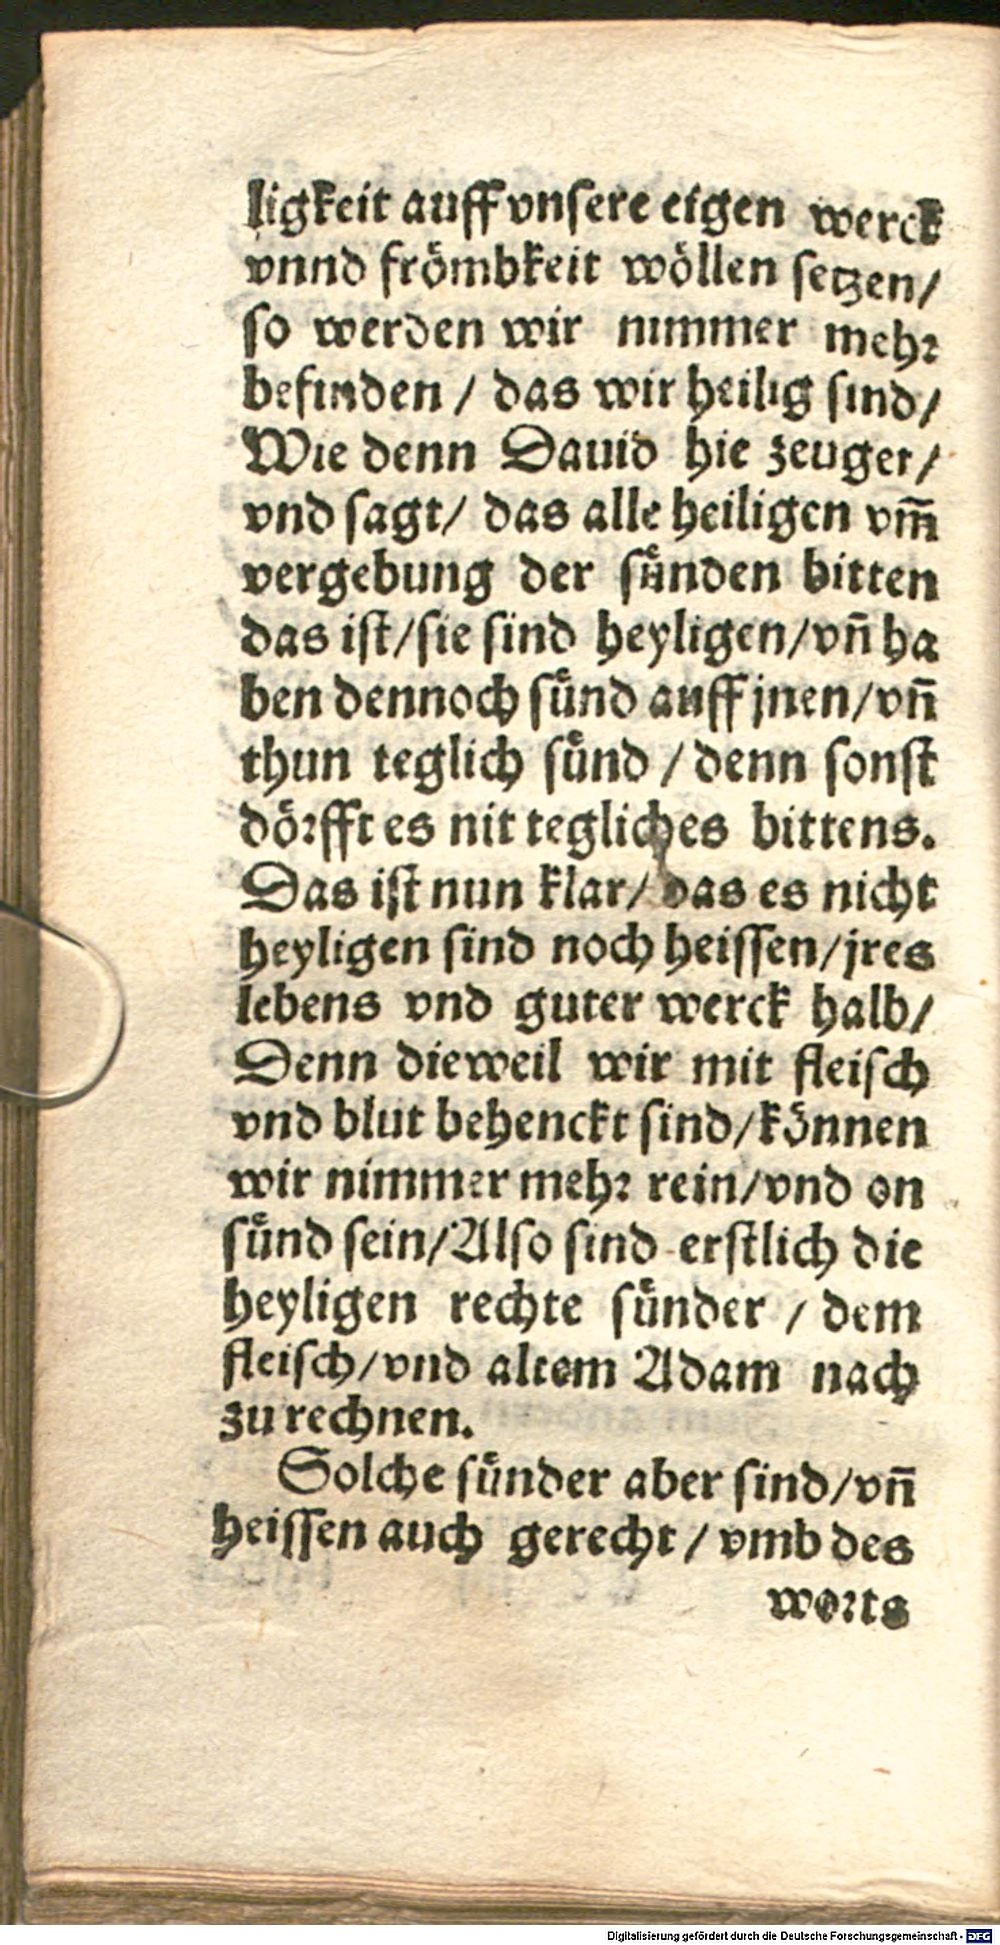 ligkeit auff vnsere eigen werck
vnnd frömbkeit wöllen setzen/
so werden wir nimmer mehr
befinden / das wir heilig sind/
Wie denn Dauid hie zeuget/
vnd sagt/ das alle heiligen vm̃
vergebung der sünden bitten
das ist/sie sind heyligen/vñ ha
ben dennoch sünd auff jnen/vñ
thun teglich sünd / denn sonst
dörfft es nit tegliches bittens.
Das ist nun klar/ das es nicht
heyligen sind noch heissen/jres
lebens vnd guter werck halb/
Denn dieweil wir mit fleisch
vnd blut behenckt sind/können
wir nimmer mehr rein/vnd on
sünd sein/Also sind erstlich die
heyligen rechte sünder / dem
fleisch/vnd altem Adam nach
zu rechnen.
Solche sünder aber sind/vñ
heissen auch gerecht / vmb des
worts
Digitalisierung gefördert durch die Deutsche Forschungsgemeinschaft - DFG